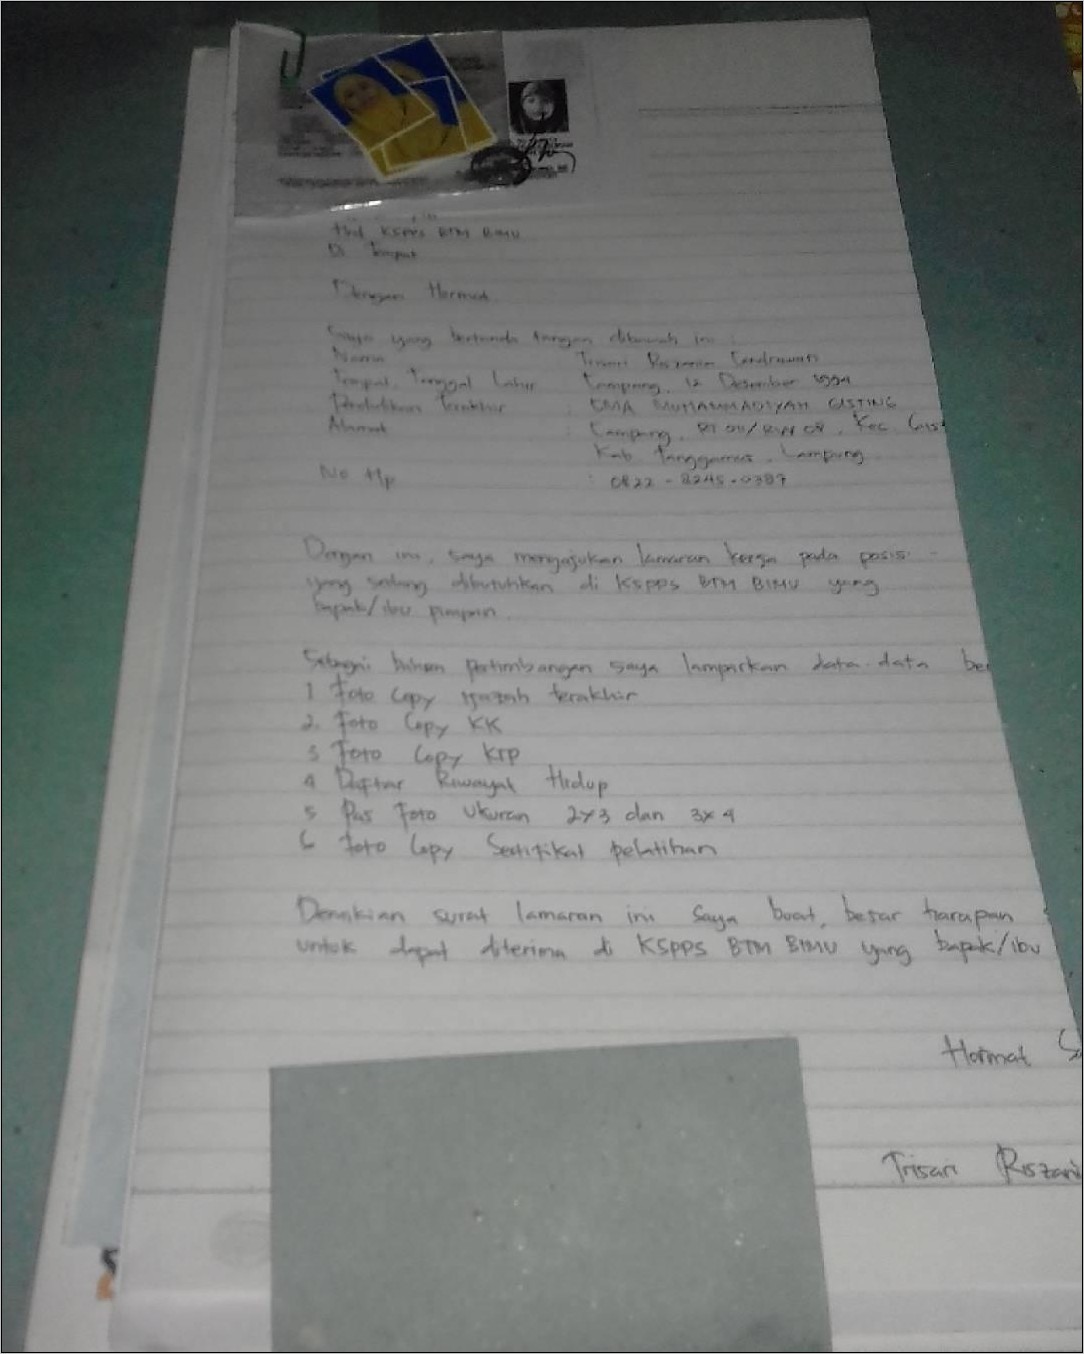 KSPPS BTM BIMU
Di Tempat
Dengan Hormat
Saya yang bertanda tangan dibawah ini :
Nama Trisari
Tempat, Tanggal Lahir : Campang, 12 Desember 1994
Pendidikan Terakhir : SMA MUHAMMADIYAH GISTING
Alamat : Campang, RT 04/RW 02, Kec. Gist
Kab Tanggamus, Lampung
No Hp : 0822-8245-0387
Dengan ini, saya mengajukan lamaran kerja pada posisi
yang sedang dibutuhkan di KSPPS BTM BIMU yang
bapak/ibu pimpin.
Sebagai bahan pertimbangan saya lampirkan data-data ber
1 Foto Copy Ijazah terakhir
2. Foto Copy KK
3 Foto Copy KTP
4 Daftar Riwayat Hidup
5 Pas Foto Ukuran 2x3 dan 3x4
6 Foto Copy Sertifikat pelatihan
Demikian surat lamaran ini saya buat, besar harapan
untuk dapat diterima di KSPPS BTM BIMU yang bapak/ibu
Hormat Sa
Trisari Riszani